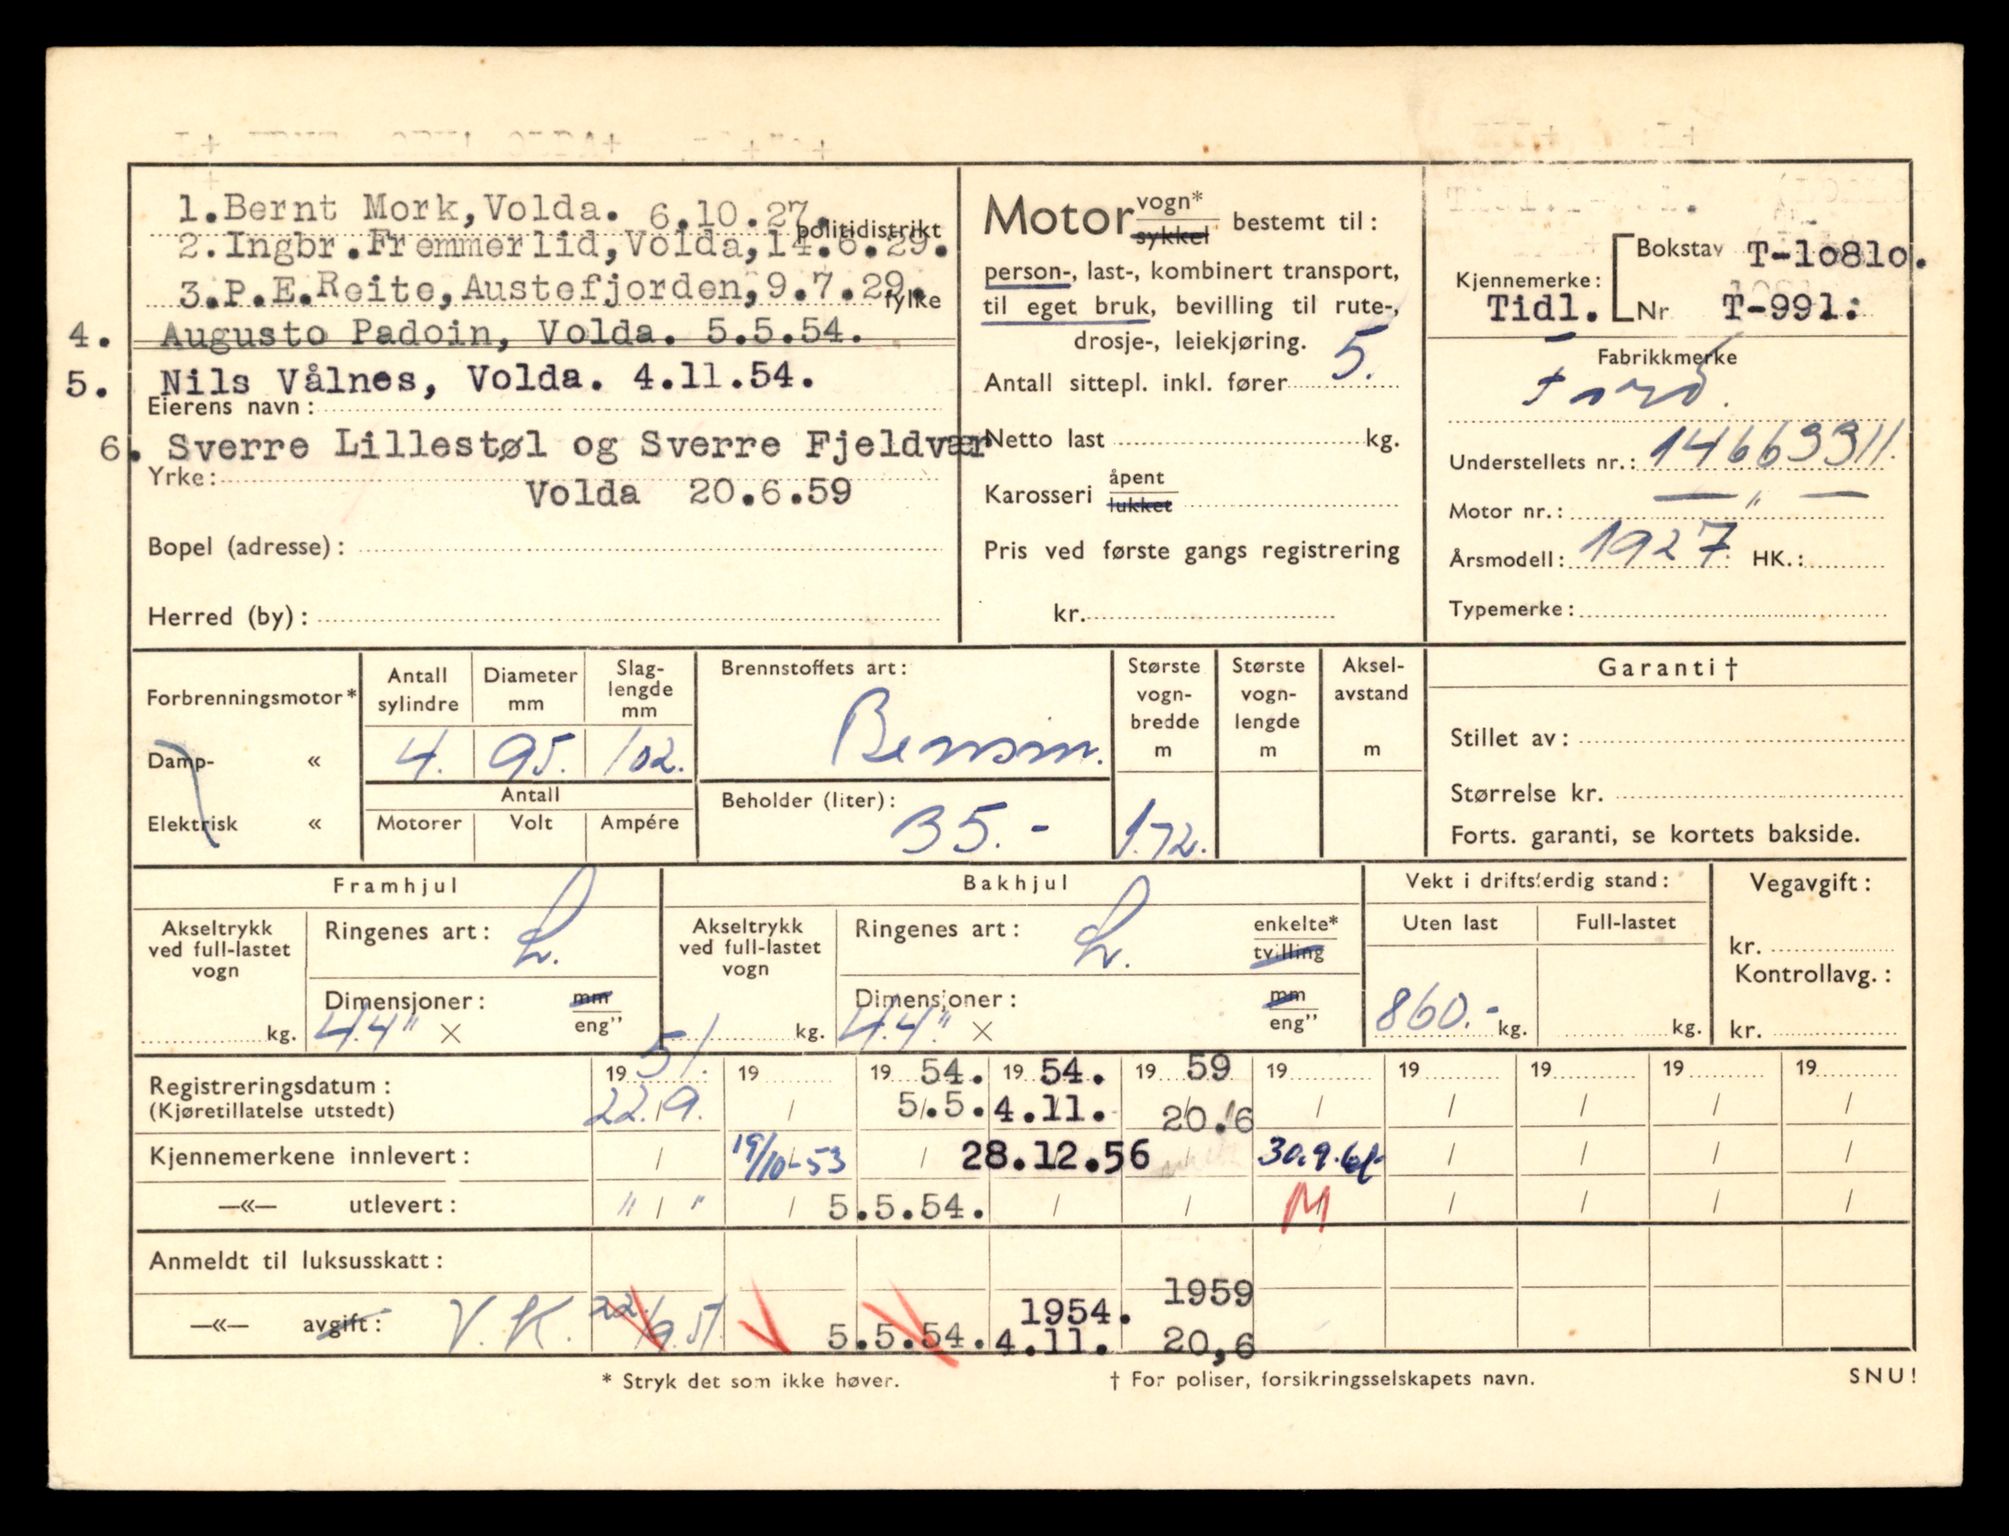 1.Bernt Mork,Volda. 6.10.27.
politidistrikt
2.Ingbr.Fremmerlid,Volda,14.6.29.
3.P.E.Reite,Austefjorden,9.7.29.
fylke
4. Augusto Padoin, Volda. 5.5.54.
5. Nils Vålnes, Volda. 4.11.54.
Eierens navn:
6. Sverre Lillestøl og Sverre Fjeldvær
Yrke:
Volda 20.6.59
Bopel (adresse):
Herred (by):
Motor vogn* sykkel bestemt til:
person-, last-, kombinert transport,
til eget bruk, bevilling til rute-,
drosje-, leiekjøring.
Antall sittepl. inkl. fører 5.
Netto last kg.
Karosseri åpent lukket
Pris ved første gangs registrering
kr.
Kjennemerke:
Bokstav T-10810.
Tidl. Nr T-991:
Fabrikkmerke
Ford.
Understellets nr.: 14663311.
Motor nr.: — " —
Årsmodell: 1927. HK.:
Typemerke:
Forbrenningsmotor*
Damp- «
Elektrisk «
Antall sylindre
Diameter mm
Slag-lengde mm
4. 95. 102.
Antall
Motorer Volt Ampére
Brennstoffets art:
Bensin.
Beholder (liter):
35.-
Største vogn-bredde m
1.72.
Største vogn-lengde m
Aksel-avstand m
Garanti †
Stillet av:
Størrelse kr.
Forts. garanti, se kortets bakside.
Framhjul
Akseltrykk ved full-lastet vogn
kg.
Ringenes art: L.
Dimensjoner: mm
4.4" × eng”
Bakhjul
Akseltrykk ved full-lastet vogn
kg.
Ringenes art: L. enkelte* tvilling
Dimensjoner: mm
4.4." × eng”
Vekt i driftsferdig stand:
Uten last Full-lastet
860.- kg. kg.
Vegavgift:
kr.
Kontrollavg.:
kr.
Registreringsdatum: 19 51. 19 19 54. 19 54. 19 59 19 19 19 19 19
(Kjøretillatelse utstedt) 22./9. / 5/.5. 4.11. 20.6 / / / / /
Kjennemerkene innlevert: / 19/10-53 / 28.12.56 / / / / /
—«— utlevert: " / " / 5.5.54. / / M / / / /
Anmeldt til luksusskatt:
—«— avgift: V.K. 22./9.51. 5.5.54. 1954. 4.11. 1959 20,6
* Stryk det som ikke høver. † For poliser, forsikringsselskapets navn. SNU!